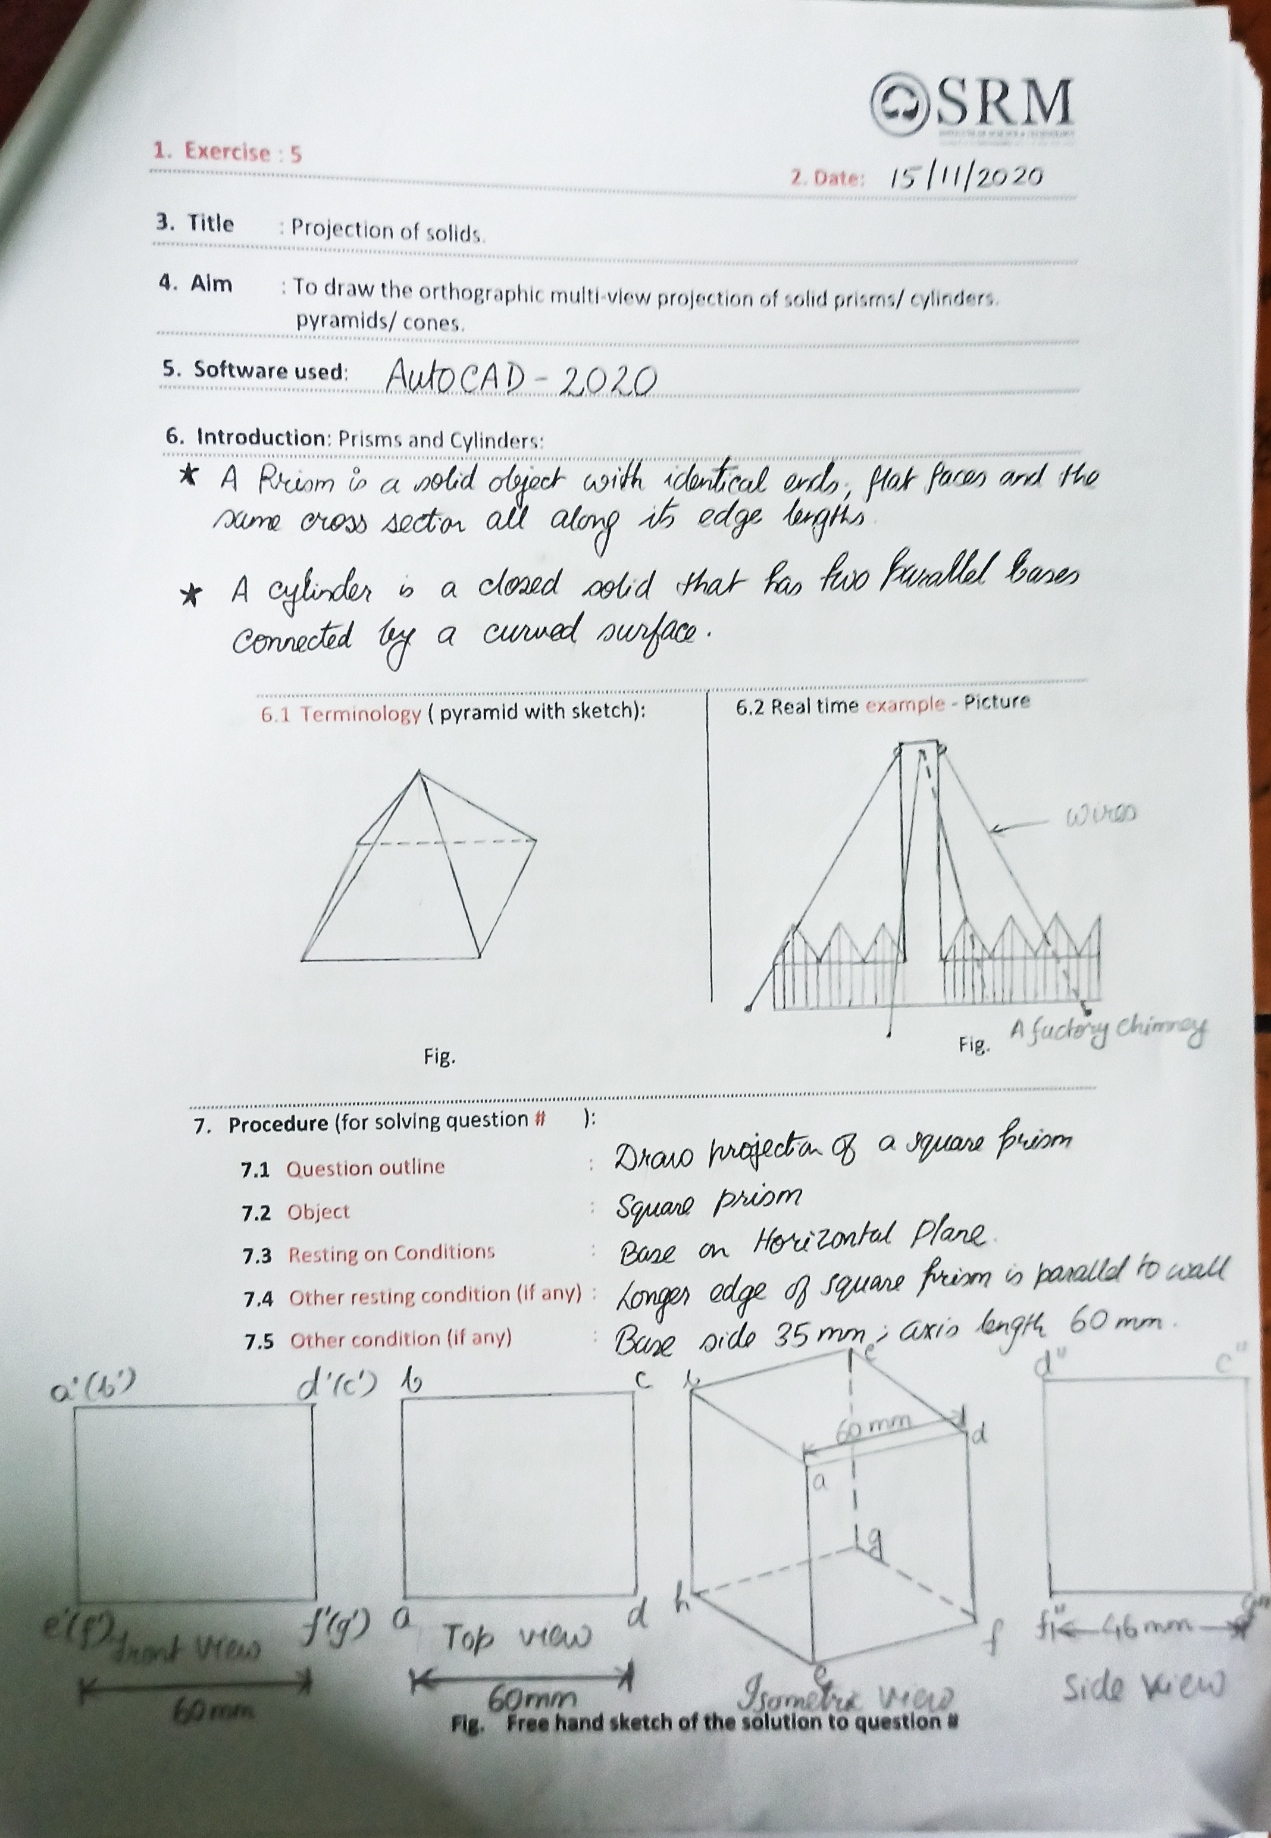 SRM
1. Exercise : 5
2. Date: 15/11/2020
3. Title : Projection of solids.
4. Aim : To draw the orthographic multi-view projection of solid prisms/ cylinders.
pyramids/ cones.
5. Software used: AutoCAD - 2020
6. Introduction: Prisms and Cylinders:
★ A Prism is a solid object with identical ends, flat faces and the
same cross section all along its edge lengths.
★ A cylinder is a closed solid that has two parallel bases
connected by a curved surface.
6.1 Terminology ( pyramid with sketch):
6.2 Real time example - Picture
wires
Fig.
Fig. A factory chimney
7. Procedure (for solving question # ):
7.1 Question outline : Draw projection of a square prism
7.2 Object : Square prism
7.3 Resting on Conditions : Base on Horizontal Plane.
7.4 Other resting condition (if any) : Longer edge of square prism is parallel to wall
7.5 Other condition (if any) : Base side 35 mm ; axis length 60 mm.
a'(b') d'(c') b c b c d" c"
60 mm d
a
g
h
e'(f') f'(g') a d f f" 46 mm
front view Top view e side view
60 mm 60mm Isometric view
Fig. Free hand sketch of the solution to question #